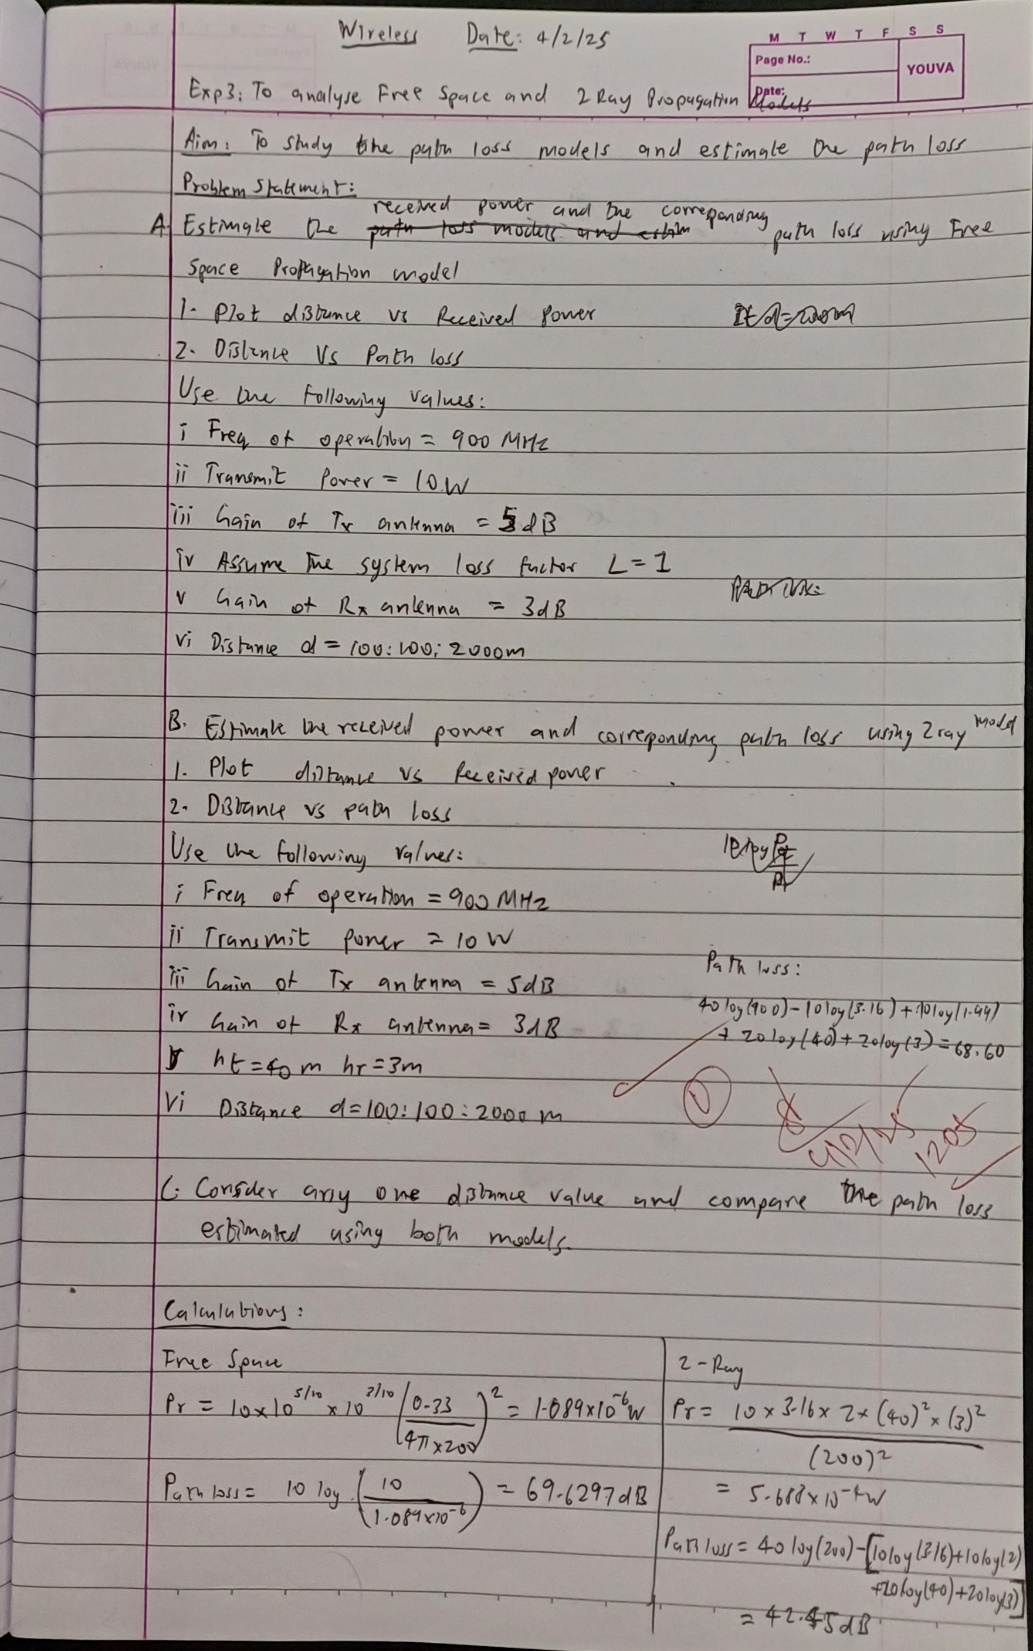 Wireless Date: 4/2/25
M T W T F S S
Page No.:
Date:
YOUVA
Exp3: To analyse Free Space and 2 Ray Propagation Models
Aim: To study the path loss models and estimate the path loss
Problem Statement:
received power and the correponding
A. Estimate the path loss models and estim path loss using Free
Space Propagation model
1. Plot distance vs Received Power
2. Distance Vs Path loss
Use the following values:
i Freq of operation = 900 MHz
ii Transmit Power = 10W
iii Gain of Tx antenna = 5dB
iv Assume the system loss factor L = 1
v Gain of Rx antenna = 3dB
vi Distance d = 100:100:2000m
B. Estimate the received power and correponding path loss using 2 ray model
1. Plot distance vs Received power
2. Distance vs path loss
Use the following values:
i Freq of operation = 900 MHz
ii Transmit power = 10 W
iii Gain of Tx antenna = 5dB
iv Gain of Rx antenna = 3dB
v ht = 40 m hr = 3m
vi Distance d = 100:100:2000 m
Path loss:
40 log(900) - 10 log(3.16) + 10 log(1.99)
+ 20 log(40) + 20 log(3) = 68.60
4/2/25
1205
C. Consider any one distance value and compare the path loss
estimated using both models.
Calculations:
Free Space
Pr = 10 x 10^5/10 x 10^3/10 (0.33 / 4π x 200)^2 = 1.089 x 10^-6 W
Path loss = 10 log (10 / 1.089 x 10^-6) = 69.6297 dB
2-Ray
Pr = 10 x 3.16 x 2 x (40)^2 x (3)^2
(200)^2
= 5.688 x 10^-4 W
Path loss = 40 log(200) - [10 log(3.16) + 10 log(2)
+ 20 log(40) + 20 log(3)]
= 42.45 dB